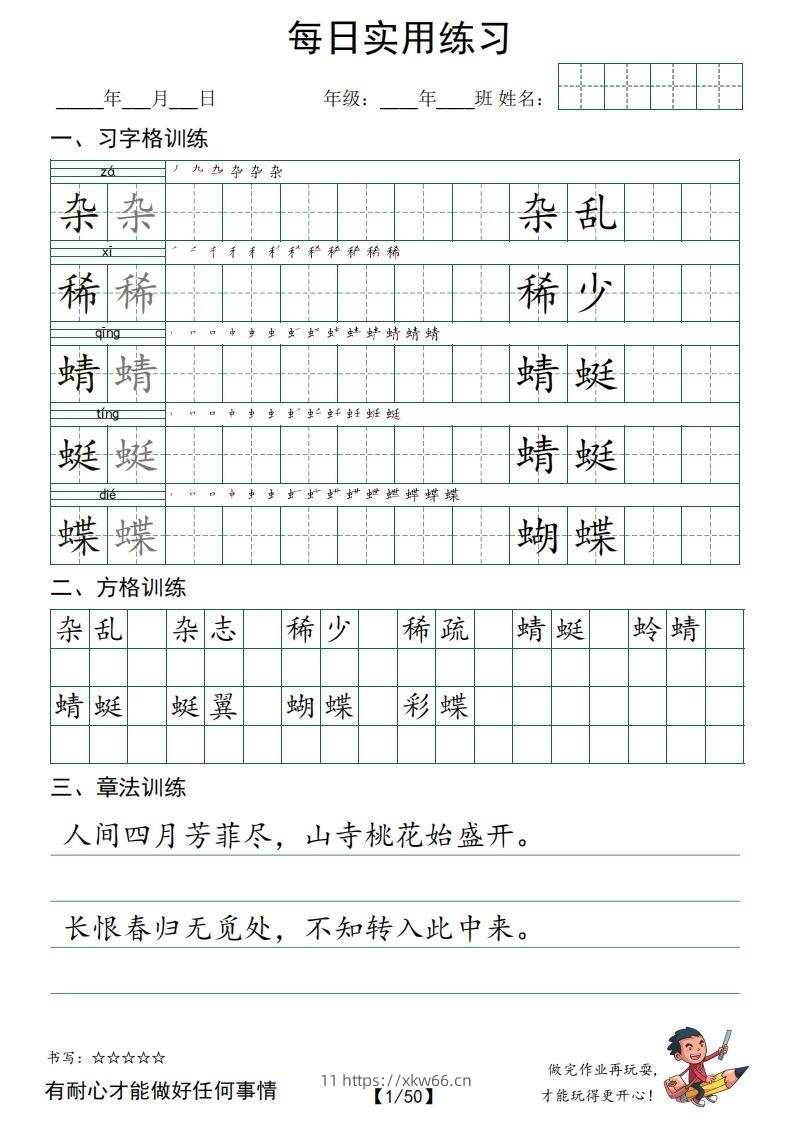 每日实用练习
_____年___月___日 年级：____年____班 姓名：
一、习字格训练
zá
杂 杂 杂 乱
xī
稀 稀 稀 少
qīng
蜻 蜻 蜻 蜓
tíng
蜓 蜓 蜻 蜓
dié
蝶 蝶 蝴 蝶
二、方格训练
杂 乱 杂 志 稀 少 稀 疏 蜻 蜓 蛉 蜻
蜻 蜓 蜓 翼 蝴 蝶 彩 蝶
三、章法训练
人间四月芳菲尽，山寺桃花始盛开。
长恨春归无觅处，不知转入此中来。
书写：☆☆☆☆☆
有耐心才能做好任何事情
11 https://xkw66.cn
【1/50】
做完作业再玩耍，
才能玩得更开心！